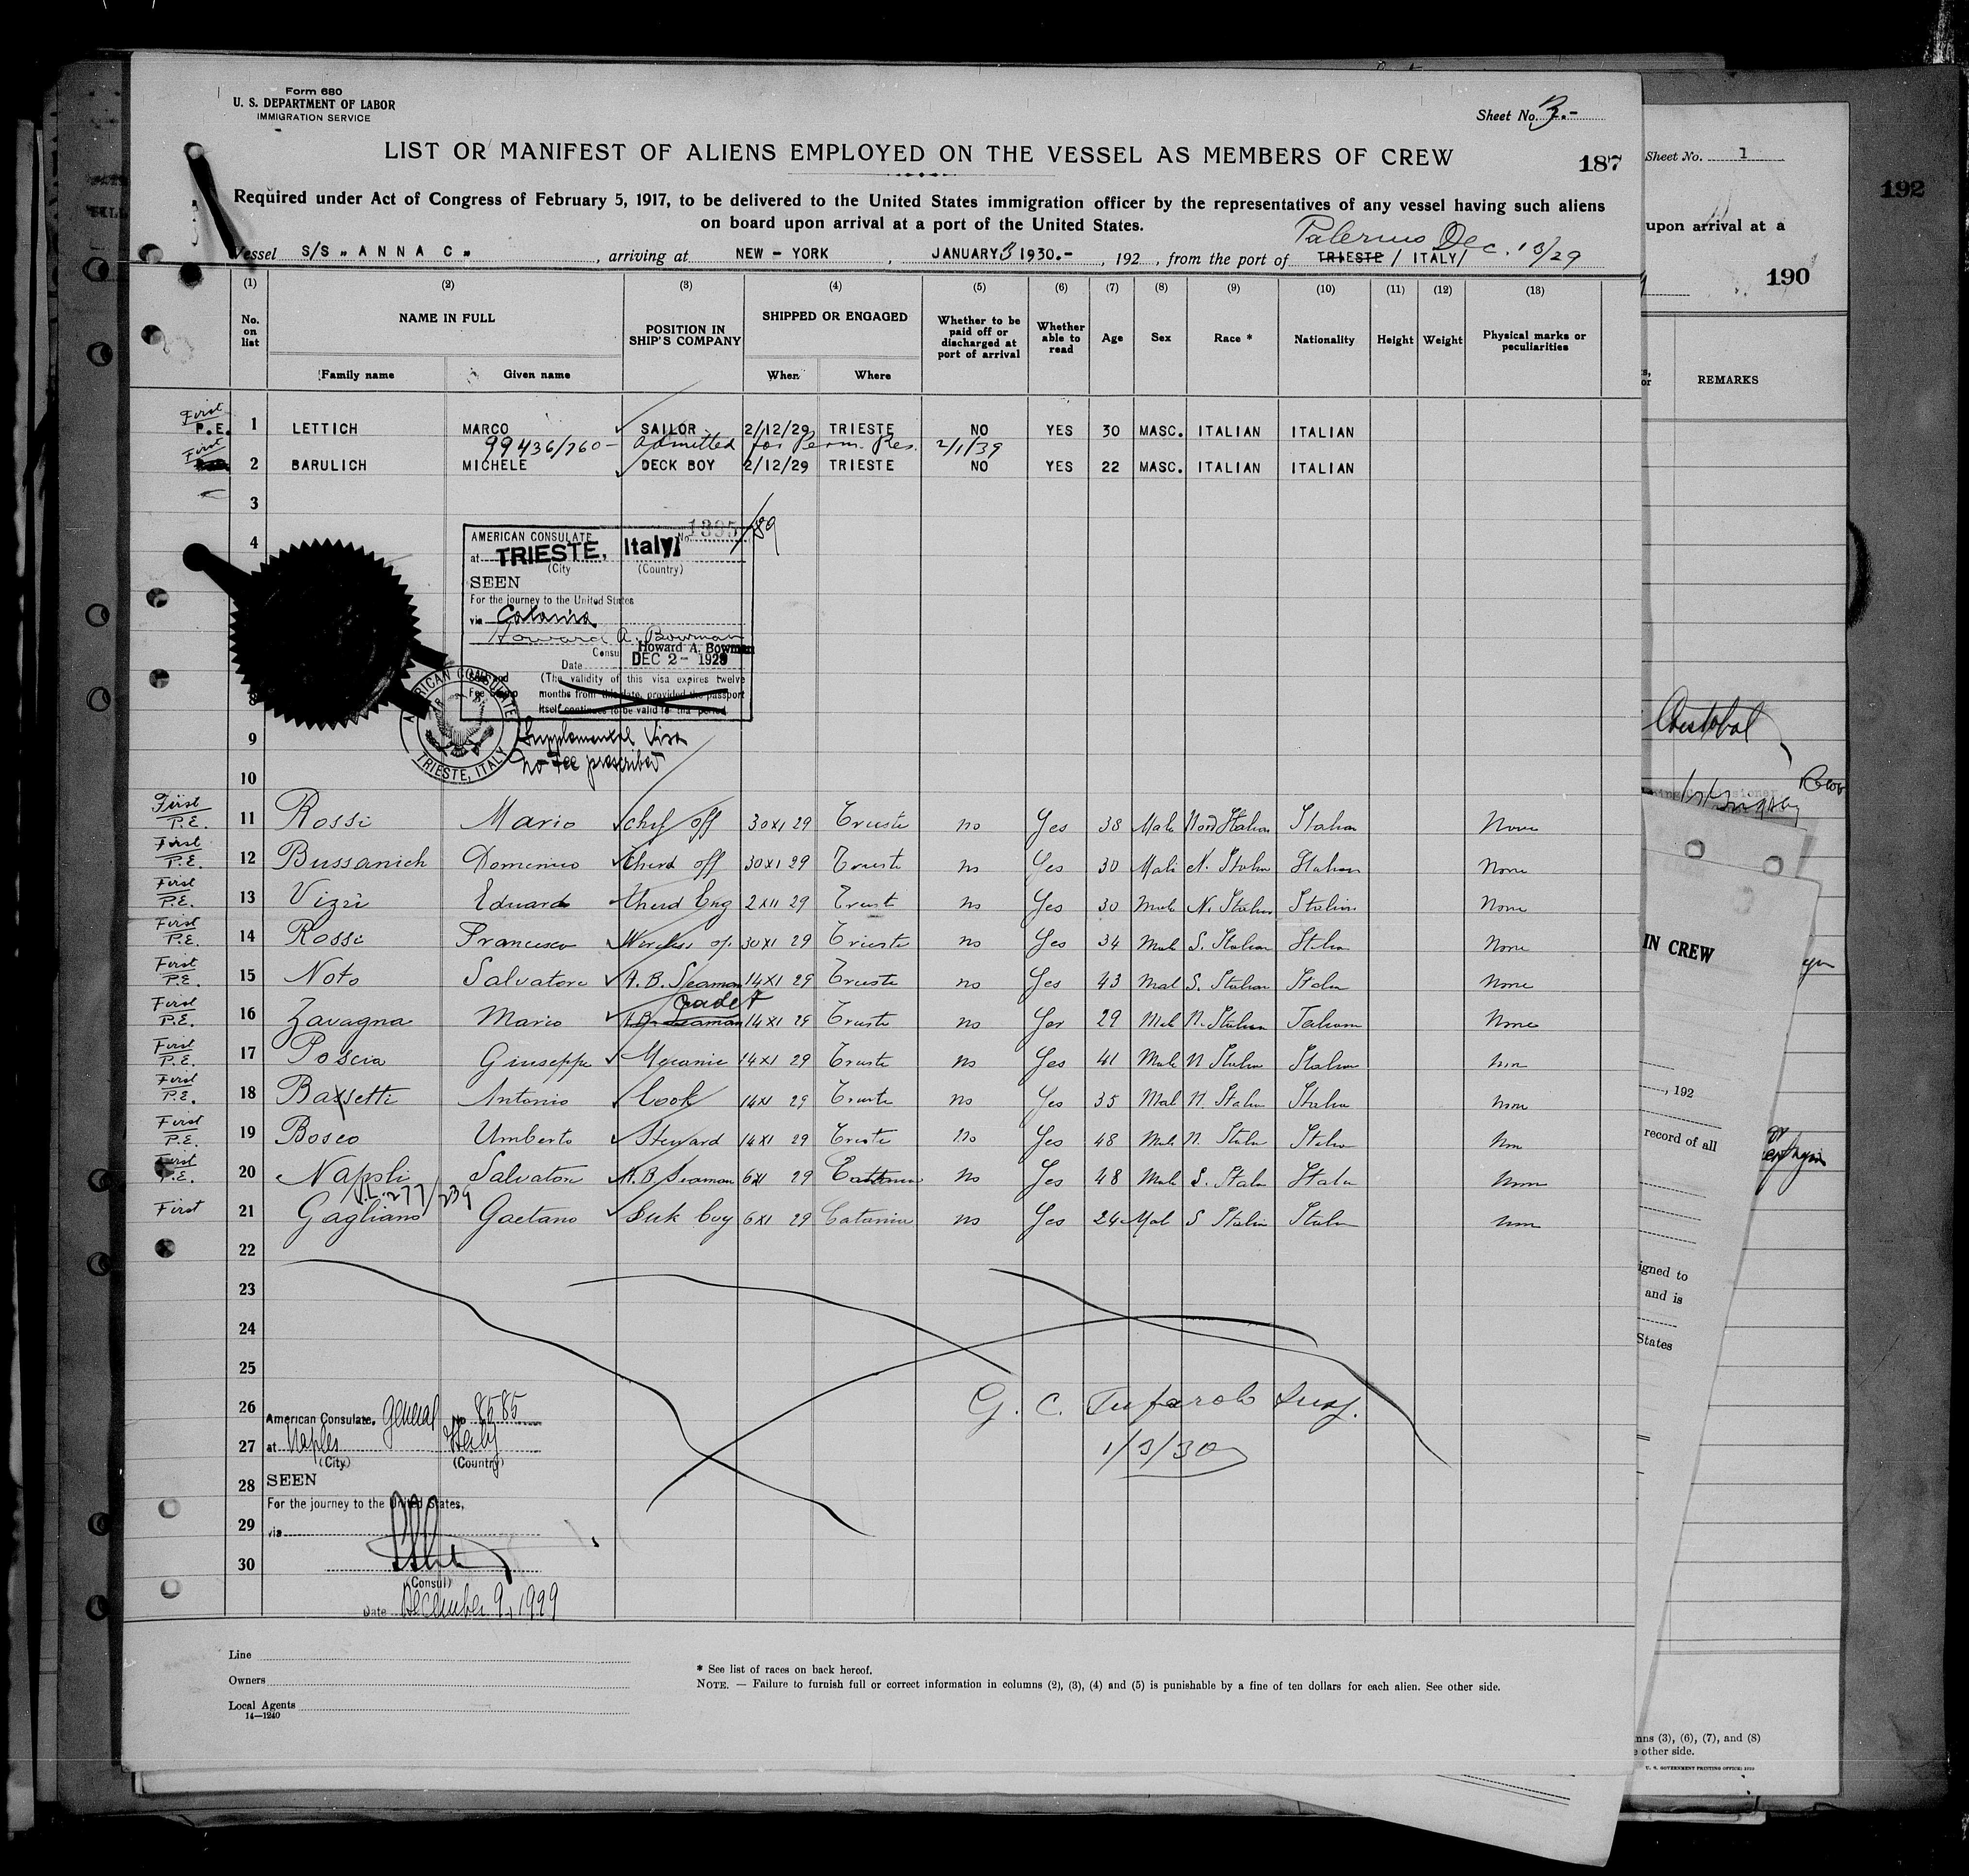 Form 680
U. S. DEPARTMENT OF LABOR
IMMIGRATION SERVICE
Sheet No.
LIST OR MANIFEST OF ALIENS EMPLOYED ON THE VESSEL AS MEMBERS OF CREW
187
Required under Act of Congress of February 5, 1917, to be delivered to the United States immigration officer by the representatives of any vessel having such aliens
on board upon arrival at a port of the United States.
Palermo Dec. 13/29
Vessel S/S „ A N N A C „ , arriving at NEW - YORK , JANUARY 3 1930.- , 192 , from the port of TRIESTE / ITALY/
(1) (2) (3) (4) (5) (6) (7) (8) (9) (10) (11) (12) (13)
No. on list NAME IN FULL POSITION IN SHIP'S COMPANY SHIPPED OR ENGAGED Whether to be paid off or discharged at port of arrival Whether able to read Age Sex Race * Nationality Height Weight Physical marks or peculiarities
Family name Given name When Where
First P.E. 1 LETTICH MARCO SAILOR 2/12/29 TRIESTE NO YES 30 MASC. ITALIAN ITALIAN
99436/760 - admitted for Perm. Res. 2/1/39
First 2 BARULICH MICHELE DECK BOY 2/12/29 TRIESTE NO YES 22 MASC. ITALIAN ITALIAN
3
4
AMERICAN CONSULATE No. 1395/89
at TRIESTE, Italy
(City (Country)
SEEN
For the journey to the United States
via Catania
Howard A. Bowman
Consu Howard A. Bowman
Date DEC 2 - 1929
(The validity of this visa expires twelve
months from this date, provided the passport
itself continues to be valid for that period
AMERICAN CONSULATE
TRIESTE, ITALY
Supplemental Visa
No Fee prescribed
9
10
First P.E. 11 Rossi Mario chif off 30 XI 29 Trieste no Yes 38 Male Nord Italian Italian None
First P.E. 12 Bussanich Domenico Third off 30 XI 29 Trieste no Yes 30 Male N. Italian Italian None
First P.E. 13 Vizzi Eduard Third Eng 2 XII 29 Trieste no Yes 30 Male N. Italian Italian None
First P.E. 14 Rossi Francesco Wireless op. 30 XI 29 Trieste no Yes 34 Male S. Italian Italian None
First P.E. 15 Noto Salvatore A. B. Seaman 14 XI 29 Trieste no Yes 43 Male S. Italian Italian None
First P.E. 16 Zavagna Mario A.B. Seaman Cadet 14 XI 29 Trieste no Yes 29 Male N. Italian Italian None
First P.E. 17 Poscia Giuseppe Mecanic 14 XI 29 Trieste no Yes 41 Male N Italian Italian
First P.E. 18 Bassetti Antonio Cook 14 XI 29 Trieste no Yes 35 Male N. Italian Italian
First P.E. 19 Bosco Umberto Steward 14 XI 29 Trieste No Yes 48 Male N. Italian Italian
First P.E. 20 Napoli Salvatore A. B Seaman 6 XI 29 Catania No Yes 48 Male S. Italian Italian
V.L. 277/239
First 21 Gagliano Gaetano Deck boy 6 XI 29 Catania no Yes 24 Male S Italian Italian
22
23
24
25
26
27
28
29
30
American Consulate General No 8585
at Naples Italy
(City) (Country)
SEEN
For the journey to the United States,
via
(Consul)
Date December 9, 1929
G. C. Tufarolo Insp.
1/3/30
Line
Owners
Local Agents
14—1240
* See list of races on back hereof.
NOTE. — Failure to furnish full or correct information in columns (2), (3), (4) and (5) is punishable by a fine of ten dollars for each alien. See other side.
Sheet No. 1
192
upon arrival at a
190
REMARKS
Cristobal
IN CREW
, 192
record of all
igned to
and is
States
nns (3), (6), (7), and (8)
e other side.
U. S. GOVERNMENT PRINTING OFFICE: